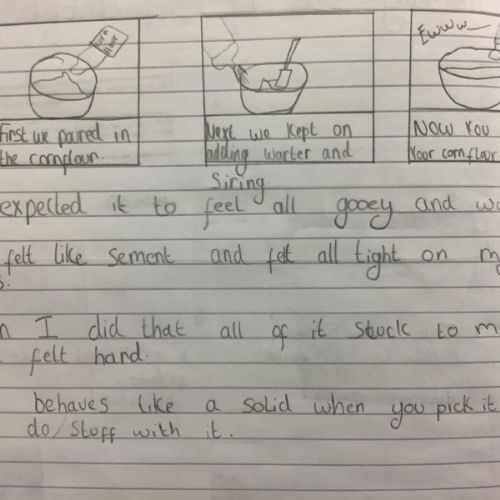 corn flour
Ewww
First we paured in
the cornflour.
Next we kept on
adding warter and
Siring.
Now you
your cornflour
expected it to feel all gooey and
felt like sement and felt all tight on
n I did that all of it stuck to m
felt hard.
behaves like a solid when you pick it
do stuff with it.